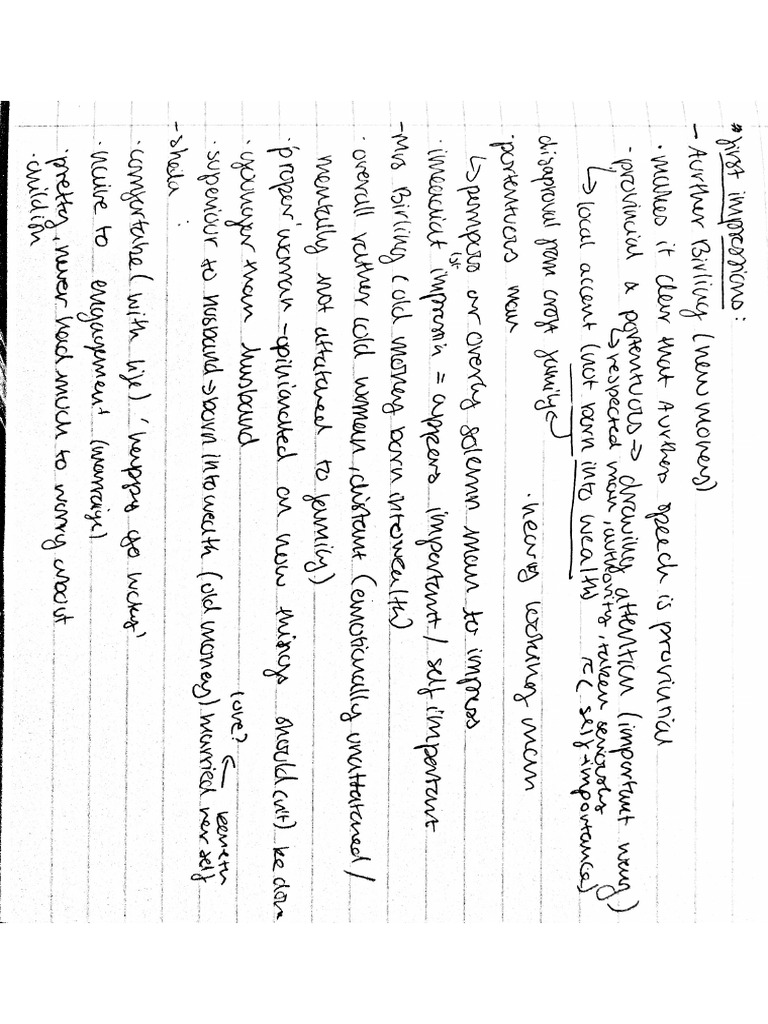 * first impressions:
- Aurther Birling (new money)
· makes it clear that Aurthers speech is proviutial
· provincial & portentuous → drawing attention (important wrung)
↳ respected man, authority, taken seriously
↳ local accent (not born into wealth) ↖ (self-importance)
disaproval from croft family ↵ · heavy looking man
· portentuous man
↳ pompos or overly solemn man to impress
· imeadiat 1st impressin = appers important / self important
- Mrs Birling (old money born into wealth)
· overall rather cold woman, distant (emotionally unattatched /
mentally not attatched to family)
· 'proper' woman - opinianated on how things should (nit) be done
· younger than husband
· superiour to husband → born into wealth (old money) married ner self
love? ← beneth
- sheila :
· comfortabe (with life) 'happy go lucky'
· naive to engagement (marraige)
· pretty, never had much to worry about
· childish